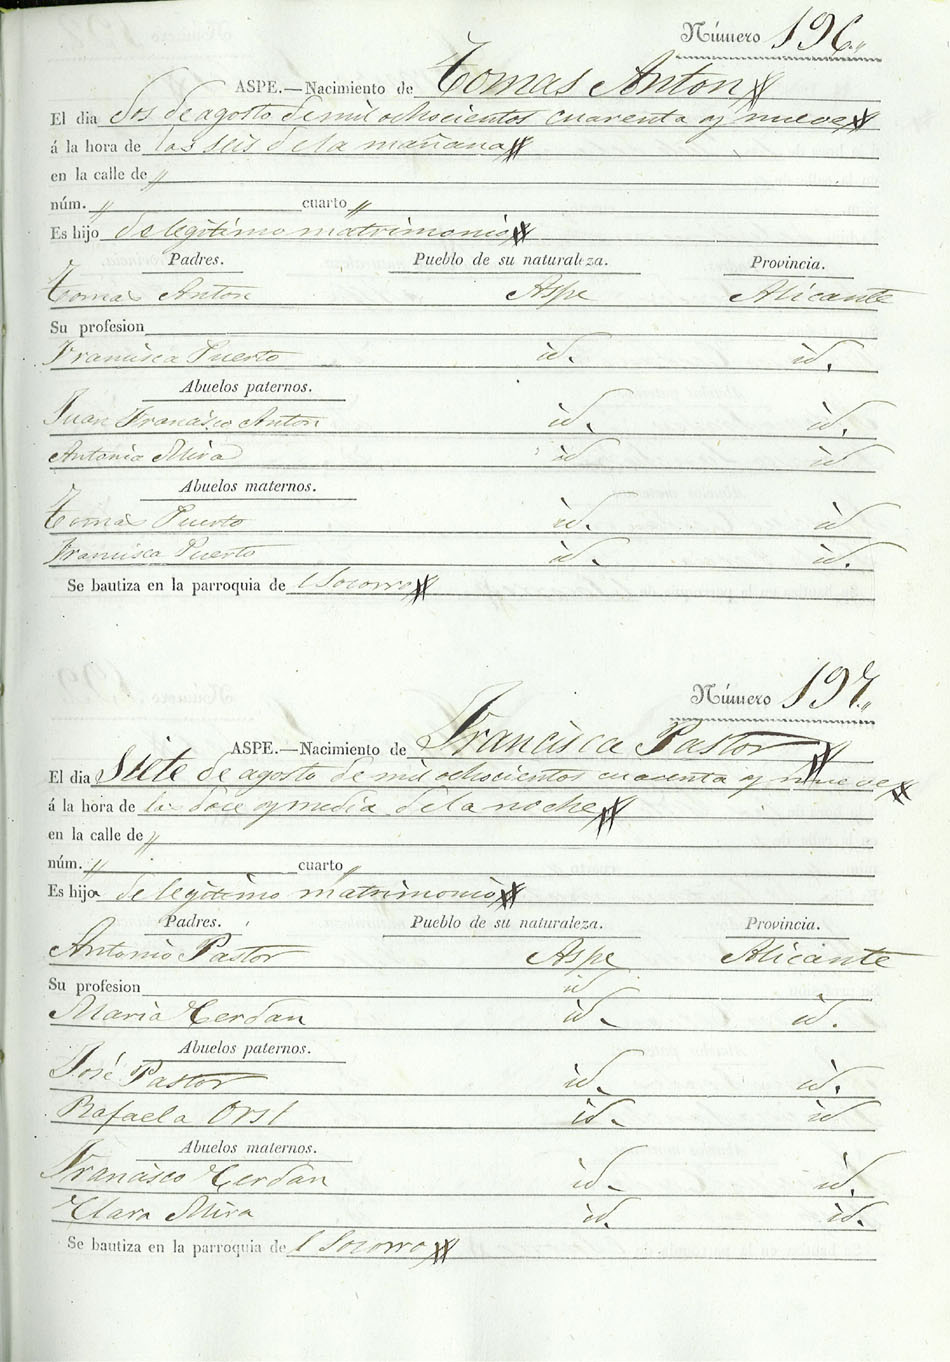 Número 196.,,
ASPE.—Nacimiento de Tomas Anton
El dia dos de agosto de mil ochocientos cuarenta y nueve
á la hora de las seis de la mañana
en la calle de ,,
núm. ,, cuarto ,,
Es hijo de legitimo matrimonio
Padres. Pueblo de su naturaleza. Provincia.
Tomas Anton Aspe Alicante
Su profesion
Francisca Puerto id. id.
Abuelos paternos.
Juan Francisco Anton id. id.
Antonia Mira id id
Abuelos maternos.
Tomas Puerto id. id
Francisca Puerto id. id.
Se bautiza en la parroquia de l Socorro
Número 197.,,
ASPE.—Nacimiento de Francisca Pastor
El dia Siete de agosto de mil ochocientos cuarenta y nueve
á la hora de la doce y media de la noche
en la calle de ,,
núm. ,, cuarto ,,
Es hija de legitimo matrimonio
Padres. Pueblo de su naturaleza. Provincia.
Antonio Pastor Aspe Alicante
Su profesion id
Maria Cerdan id. id.
Abuelos paternos.
José Pastor id. id.
Rafaela id. id
Abuelos maternos.
Francisco Cerdan id. id.
Clara Mira id. id.
Se bautiza en la parroquia de l Socorro